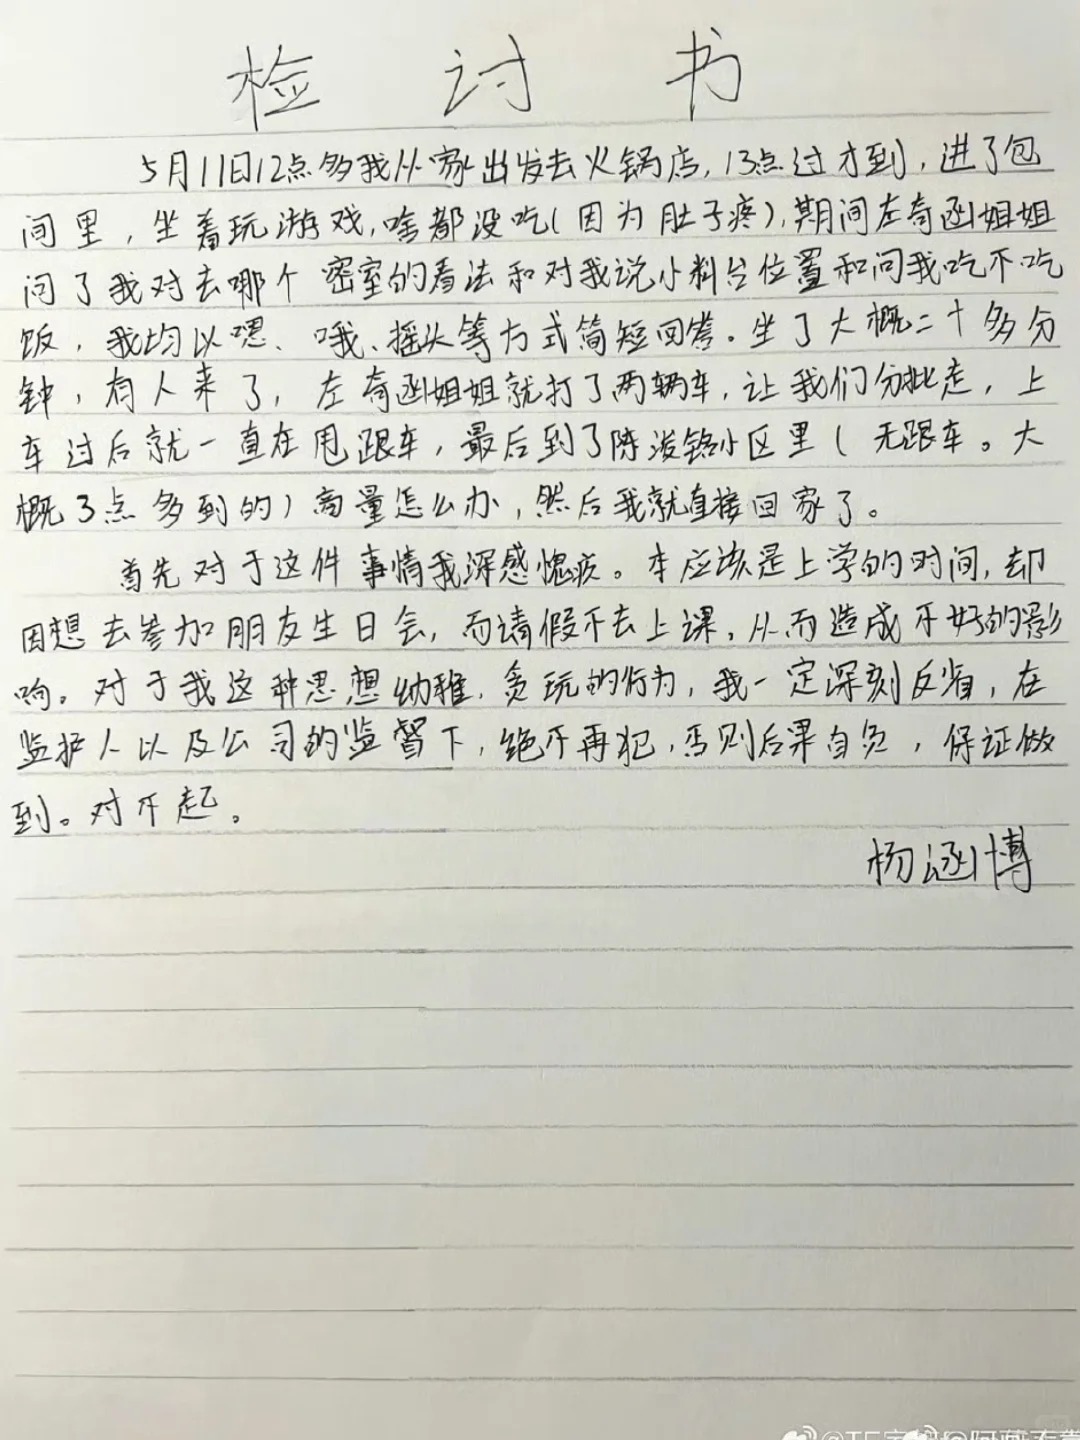 检讨书
5月11日12点多我从家出发去火锅店,13点过才到,进了包
间里,坐着玩游戏,啥都没吃(因为肚子疼),期间左奇函姐姐
问了我对去哪个密室的看法和对我说小料台位置和问我吃不吃
饭,我均以嗯、哦、摇头等方式简短回答。坐了大概二十多分
钟,有人来了,左奇函姐姐就打了两辆车,让我们分批走,上
车过后就一直在甩跟车,最后到了陈浚铭小区里(无跟车。大
概3点多到的)商量怎么办,然后我就直接回家了。
首先对于这件事情我深感愧疚。本应该是上学的时间,却
因想去参加朋友生日会,而请假不去上课,从而造成不好的影
响。对于我这种思想幼稚,贪玩的行为,我一定深刻反省,在
监护人以及公司的监督下,绝不再犯,否则后果自负,保证做
到。对不起。
杨涵博